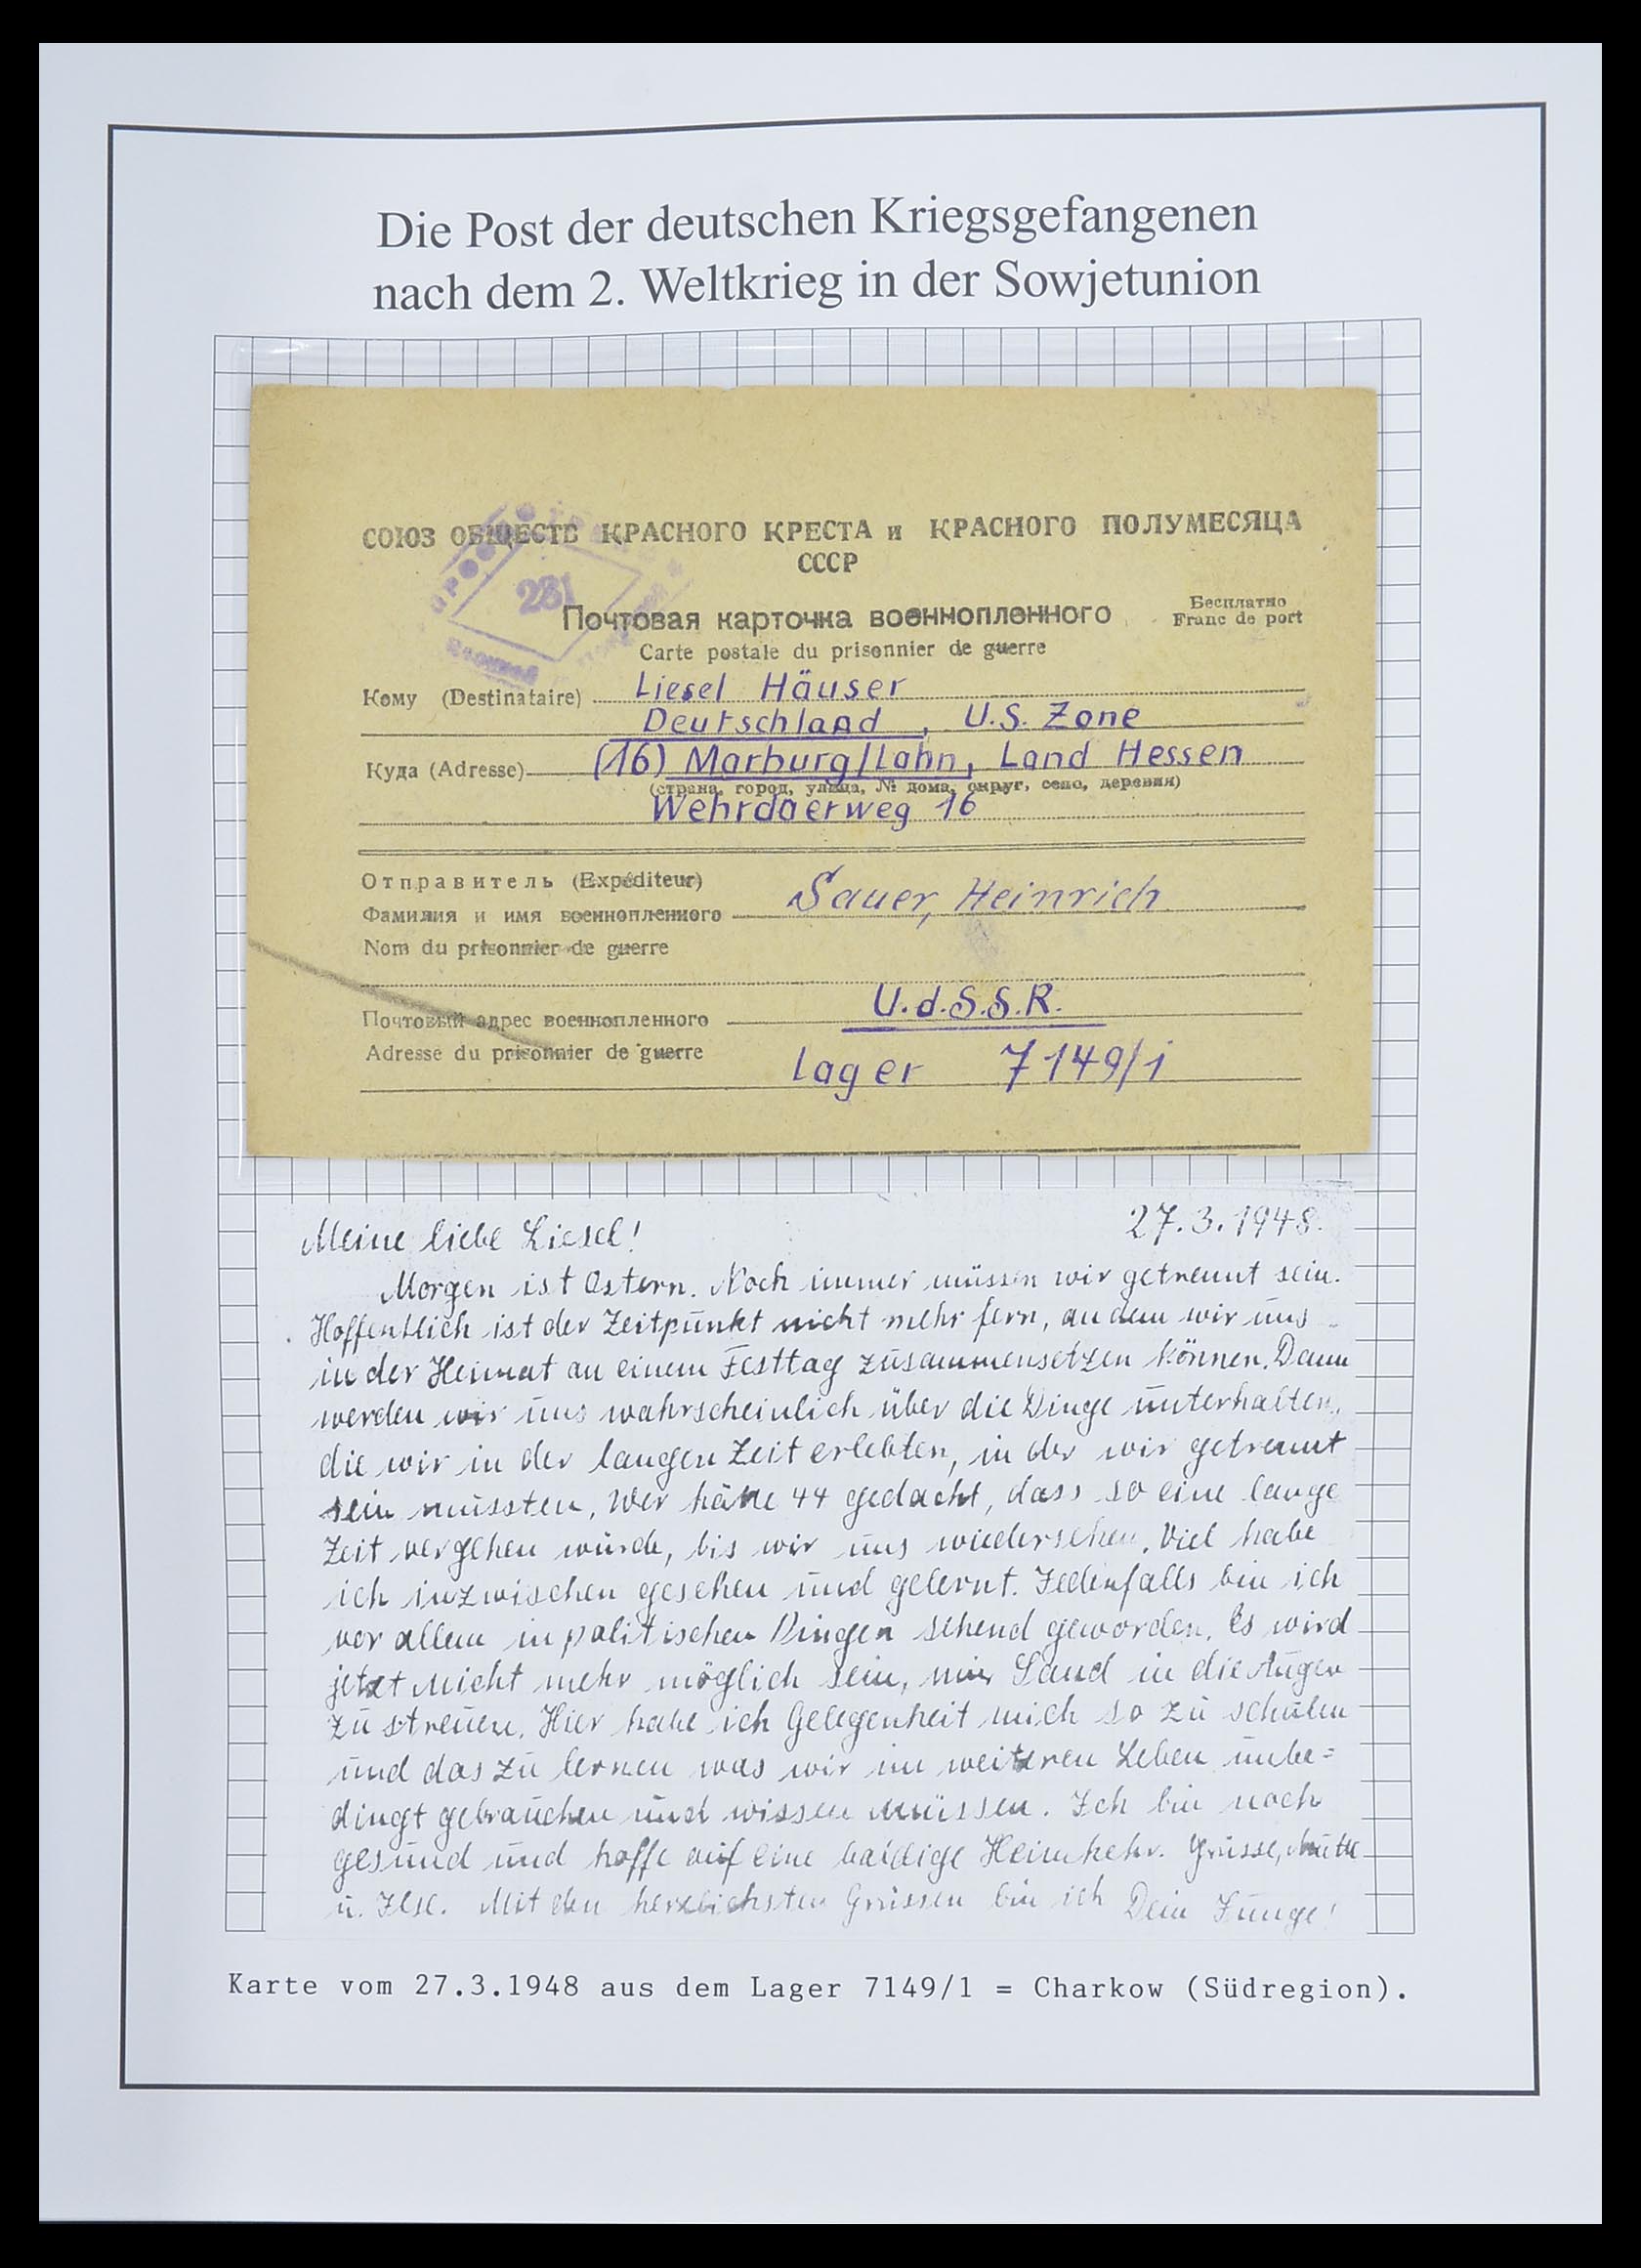 Die Post der deutschen Kriegsgefangenen
nach dem 2. Weltkrieg in der Sowjetunion
СОЮЗ ОБЩЕСТВ КРАСНОГО КРЕСТА и КРАСНОГО ПОЛУМЕСЯЦА
СССР
231
Почтовая карточка военнопленного
Бесплатно
Franc de port
Carte postale du prisonnier de guerre
Кому (Destinataire) Liesel Häuser
Deutschland, U.S. Zone
Куда (Adresse) (16) Marburg/Lahn, Land Hessen
(страна, город, улица, № дома, округ, село, деревня)
Wehrdaerweg 16
Отправитель (Expéditeur)
Фамилия и имя военнопленного Sauer, Heinrich
Nom du prisonnier de guerre
U.d.S.S.R.
Почтовый адрес военнопленного
Adresse du prisonnier de guerre
lager 7149/1
27.3.1948.
Meine liebe Liesel!
Morgen ist Ostern. Noch immer müssen wir getrennt sein.
Hoffentlich ist der Zeitpunkt nicht mehr fern, an dem wir uns
in der Heimat an einem Festtag zusammensetzen können. Dann
werden wir uns wahrscheinlich über die Dinge unterhalten,
die wir in der langen Zeit erlebten, in der wir getrennt
sein mussten. Wer hätte 44 gedacht, dass so eine lange
Zeit vergehen würde, bis wir uns wiedersehen. Viel habe
ich inzwischen gesehen und gelernt. Jedenfalls bin ich
vor allem in politischen Dingen sehend geworden. Es wird
jetzt nicht mehr möglich sein, mir Sand in die Augen
zu streuen. Hier habe ich Gelegenheit mich so zu schulen
und das zu lernen was wir im weiteren Leben unbe=
dingt gebrauchen und wissen müssen. Ich bin noch
gesund und hoffe auf eine baldige Heimkehr. Grüsse, Mutti
u. Ilse. Mit den herzlichsten Grüssen bin ich Dein Junge!
Karte vom 27.3.1948 aus dem Lager 7149/1 = Charkow (Südregion).